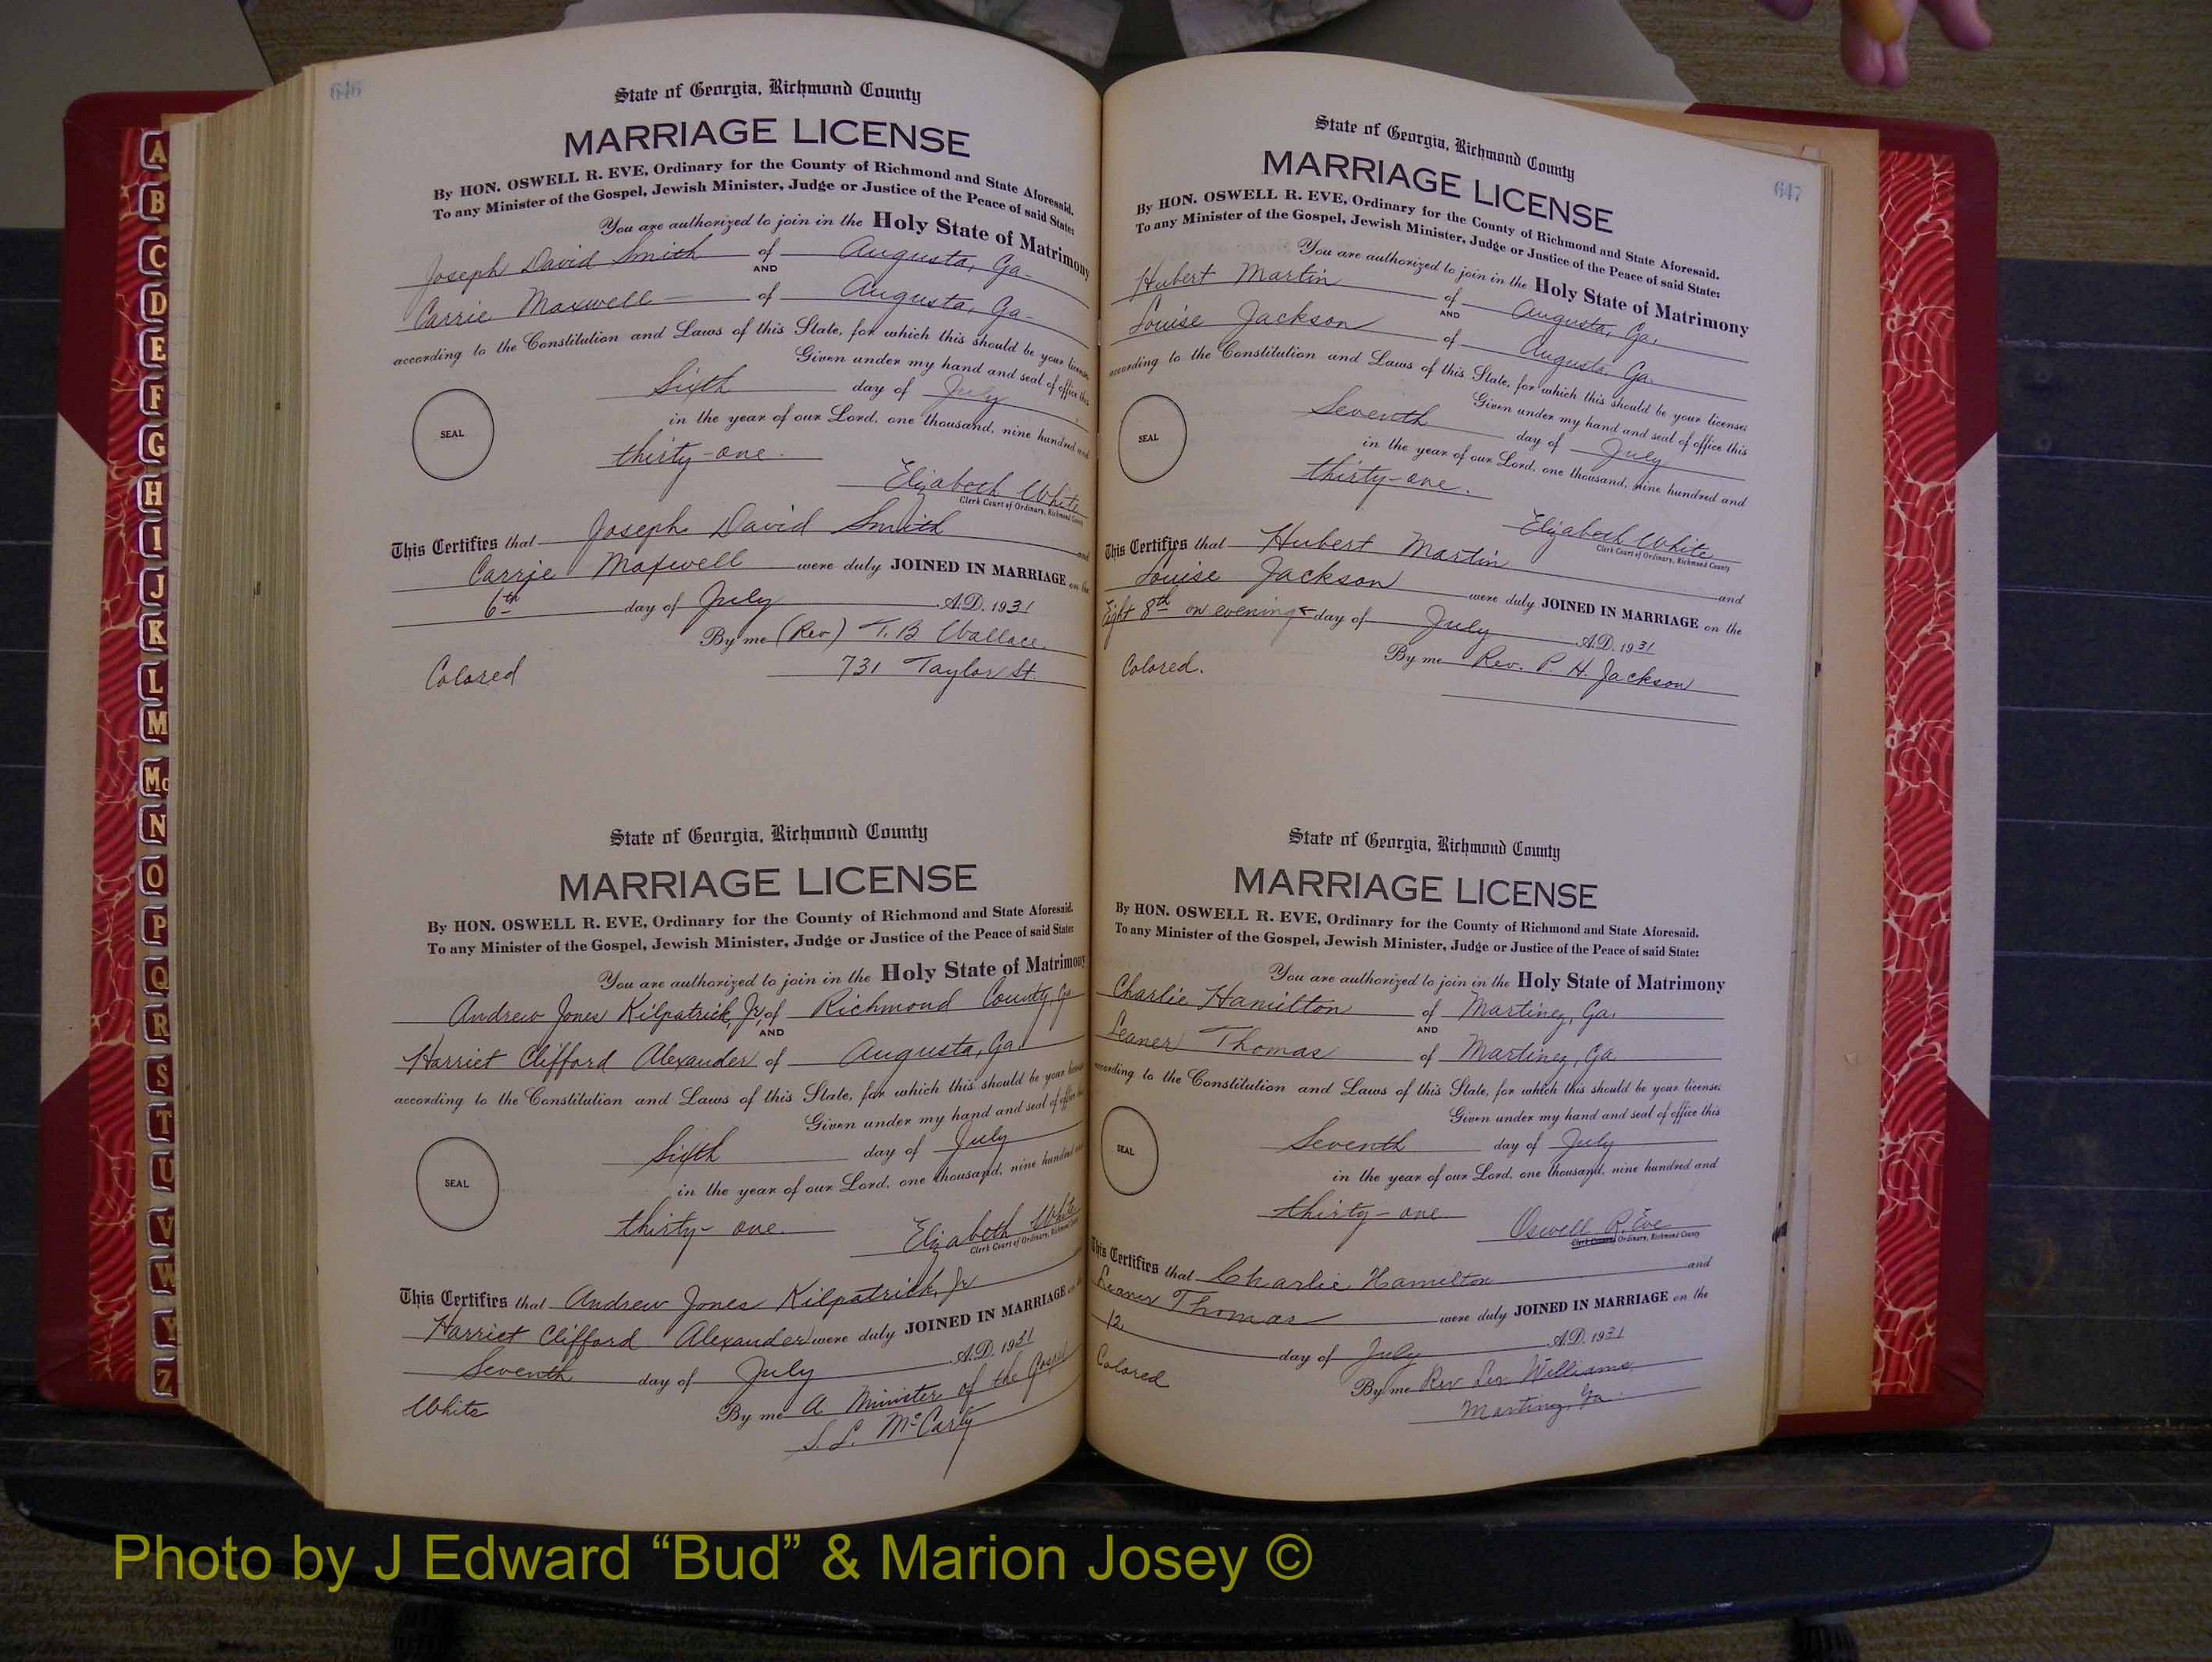 646
State of Georgia, Richmond County
MARRIAGE LICENSE
By HON. OSWELL R. EVE, Ordinary for the County of Richmond and State Aforesaid.
To any Minister of the Gospel, Jewish Minister, Judge or Justice of the Peace of said State:
You are authorized to join in the Holy State of Matrimony
Joseph David Smith of Augusta, Ga.
AND
Carrie Maxwell of Augusta, Ga.
according to the Constitution and Laws of this State, for which this should be your license
Given under my hand and seal of office this
Sixth day of July
SEAL
in the year of our Lord, one thousand, nine hundred and
thirty-one.
Elizabeth White
Clerk Court of Ordinary, Richmond County
This Certifies that Joseph David Smith and
Carrie Maxwell were duly JOINED IN MARRIAGE on the
6th day of July A.D. 1931
By me (Rev) T. B Wallace.
Colored 731 Taylor St.
State of Georgia, Richmond County
MARRIAGE LICENSE
By HON. OSWELL R. EVE, Ordinary for the County of Richmond and State Aforesaid.
To any Minister of the Gospel, Jewish Minister, Judge or Justice of the Peace of said State:
You are authorized to join in the Holy State of Matrimony
Andrew Jones Kilpatrick, Jr of Richmond County, Ga
AND
Harriet Clifford Alexander of Augusta, Ga.
according to the Constitution and Laws of this State, for which this should be your license
Given under my hand and seal of office this
Sixth day of July
SEAL
in the year of our Lord, one thousand, nine hundred and
thirty-one.
Elizabeth White
Clerk Court of Ordinary, Richmond County
This Certifies that Andrew Jones Kilpatrick, Jr
Harriet Clifford Alexander were duly JOINED IN MARRIAGE on
Seventh day of July A.D. 1931
White By me A Minister of the Gospel
S. L. McCarty
647
State of Georgia, Richmond County
MARRIAGE LICENSE
By HON. OSWELL R. EVE, Ordinary for the County of Richmond and State Aforesaid.
To any Minister of the Gospel, Jewish Minister, Judge or Justice of the Peace of said State:
You are authorized to join in the Holy State of Matrimony
Hubert Martin of Augusta, Ga.
AND
Louise Jackson of Augusta, Ga.
according to the Constitution and Laws of this State, for which this should be your license;
Given under my hand and seal of office this
Seventh day of July
SEAL
in the year of our Lord, one thousand, nine hundred and
thirty-one.
Elizabeth White
Clerk Court of Ordinary, Richmond County
This Certifies that Hubert Martin
Louise Jackson and
were duly JOINED IN MARRIAGE on the
Eight 8th on evening day of July A.D. 1931
By me Rev. P. H. Jackson
Colored.
State of Georgia, Richmond County
MARRIAGE LICENSE
By HON. OSWELL R. EVE, Ordinary for the County of Richmond and State Aforesaid.
To any Minister of the Gospel, Jewish Minister, Judge or Justice of the Peace of said State:
You are authorized to join in the Holy State of Matrimony
Charlie Hamilton of Martinez, Ga.
AND
Leaner Thomas of Martinez, Ga.
according to the Constitution and Laws of this State, for which this should be your license;
Given under my hand and seal of office this
Seventh day of July
SEAL
in the year of our Lord, one thousand, nine hundred and
thirty-one
Oswell R. Eve
Clerk Court Ordinary, Richmond County
This Certifies that Charlie Hamilton and
Leaner Thomas were duly JOINED IN MARRIAGE on the
12 day of July A.D. 1931
Colored By me Rev Williams,
Ga.
A
B
C
D
E
F
G
H
I
J
K
L
M
Mc
N
O
P
Q
R
S
T
U
V
W
Y
Z
Photo by J Edward “Bud” & Marion Josey ©